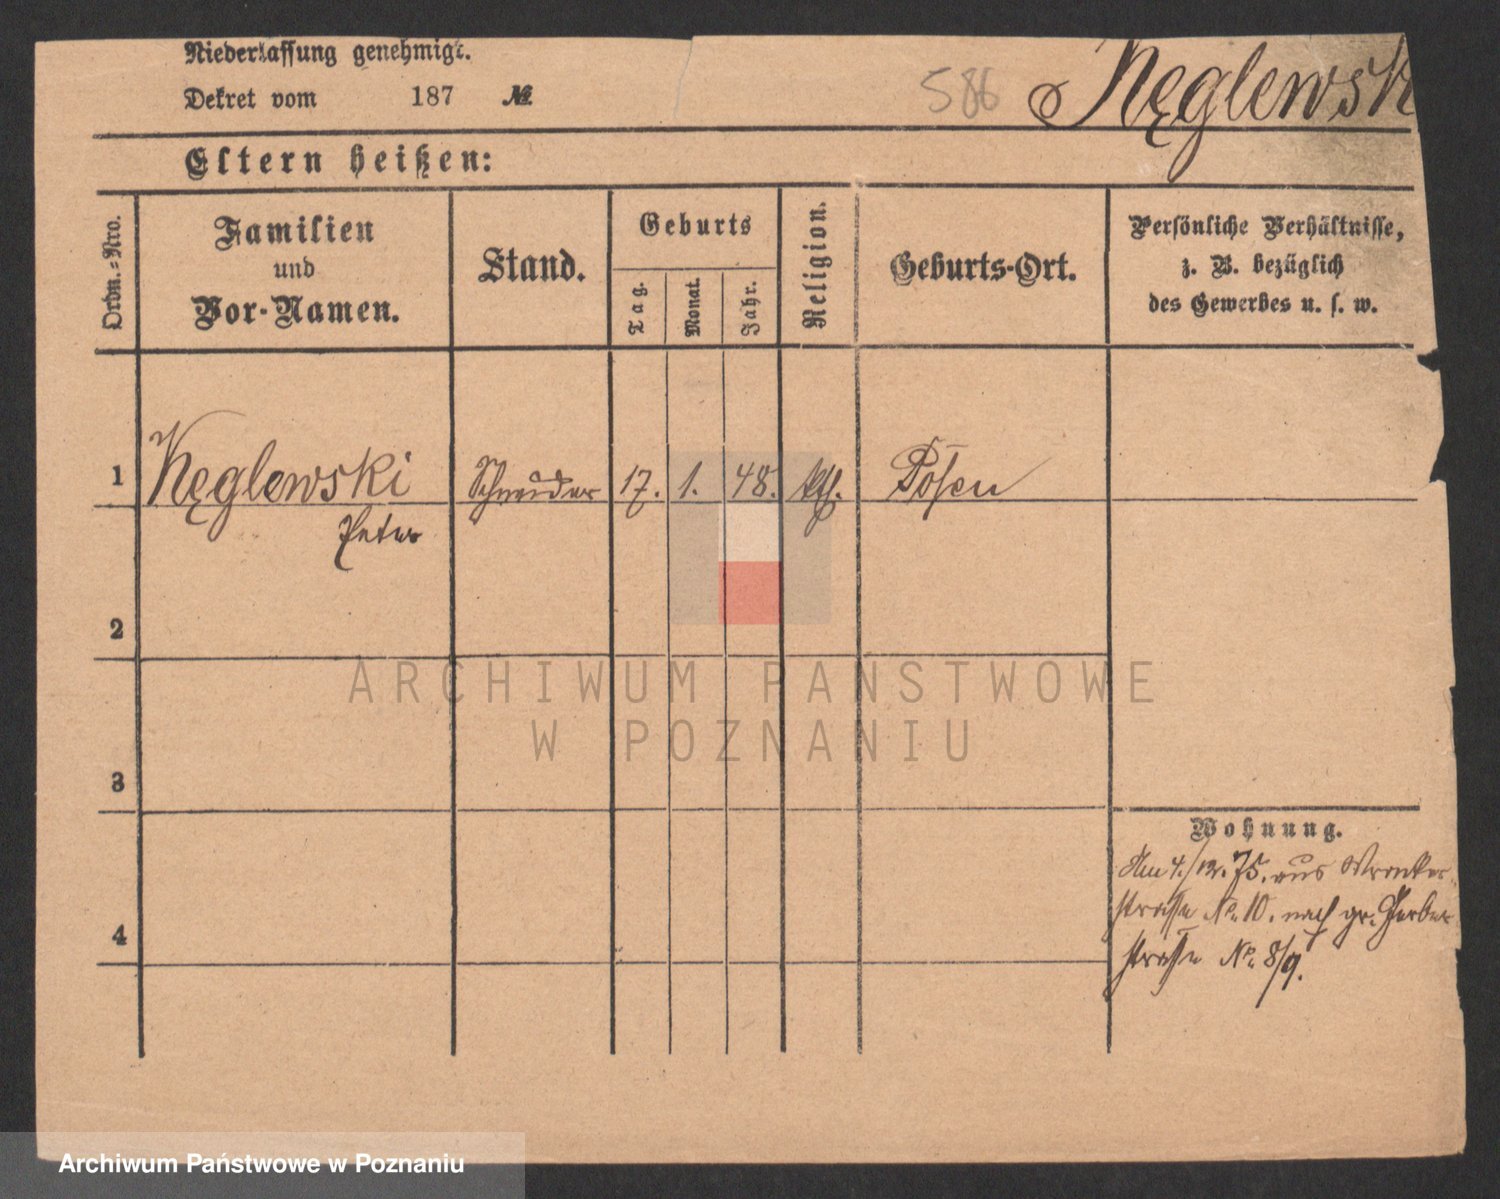 Niederlassung genehmigt.
Dekret vom 187 №
586 Kęglewsk
Eltern heißen:
Ordn.=Nro.
Familien
und
Vor-Namen.
Stand.
Geburts
Tag.
Monat.
Jahr.
Religion.
Geburts-Ort.
Persönliche Verhältnisse,
z. B. bezüglich
des Gewerbes u. s. w.
1 Kęglewski Schneider 17. 1. 48. kth. Posen
Peter
2
3
4
Wohnung.
Am 4./12. 75. aus Wronker
strasse No. 10. nach gr. Gerber
strasse No. 8/9.
ARCHIWUM PAŃSTWOWE
W POZNANIU
Archiwum Państwowe w Poznaniu